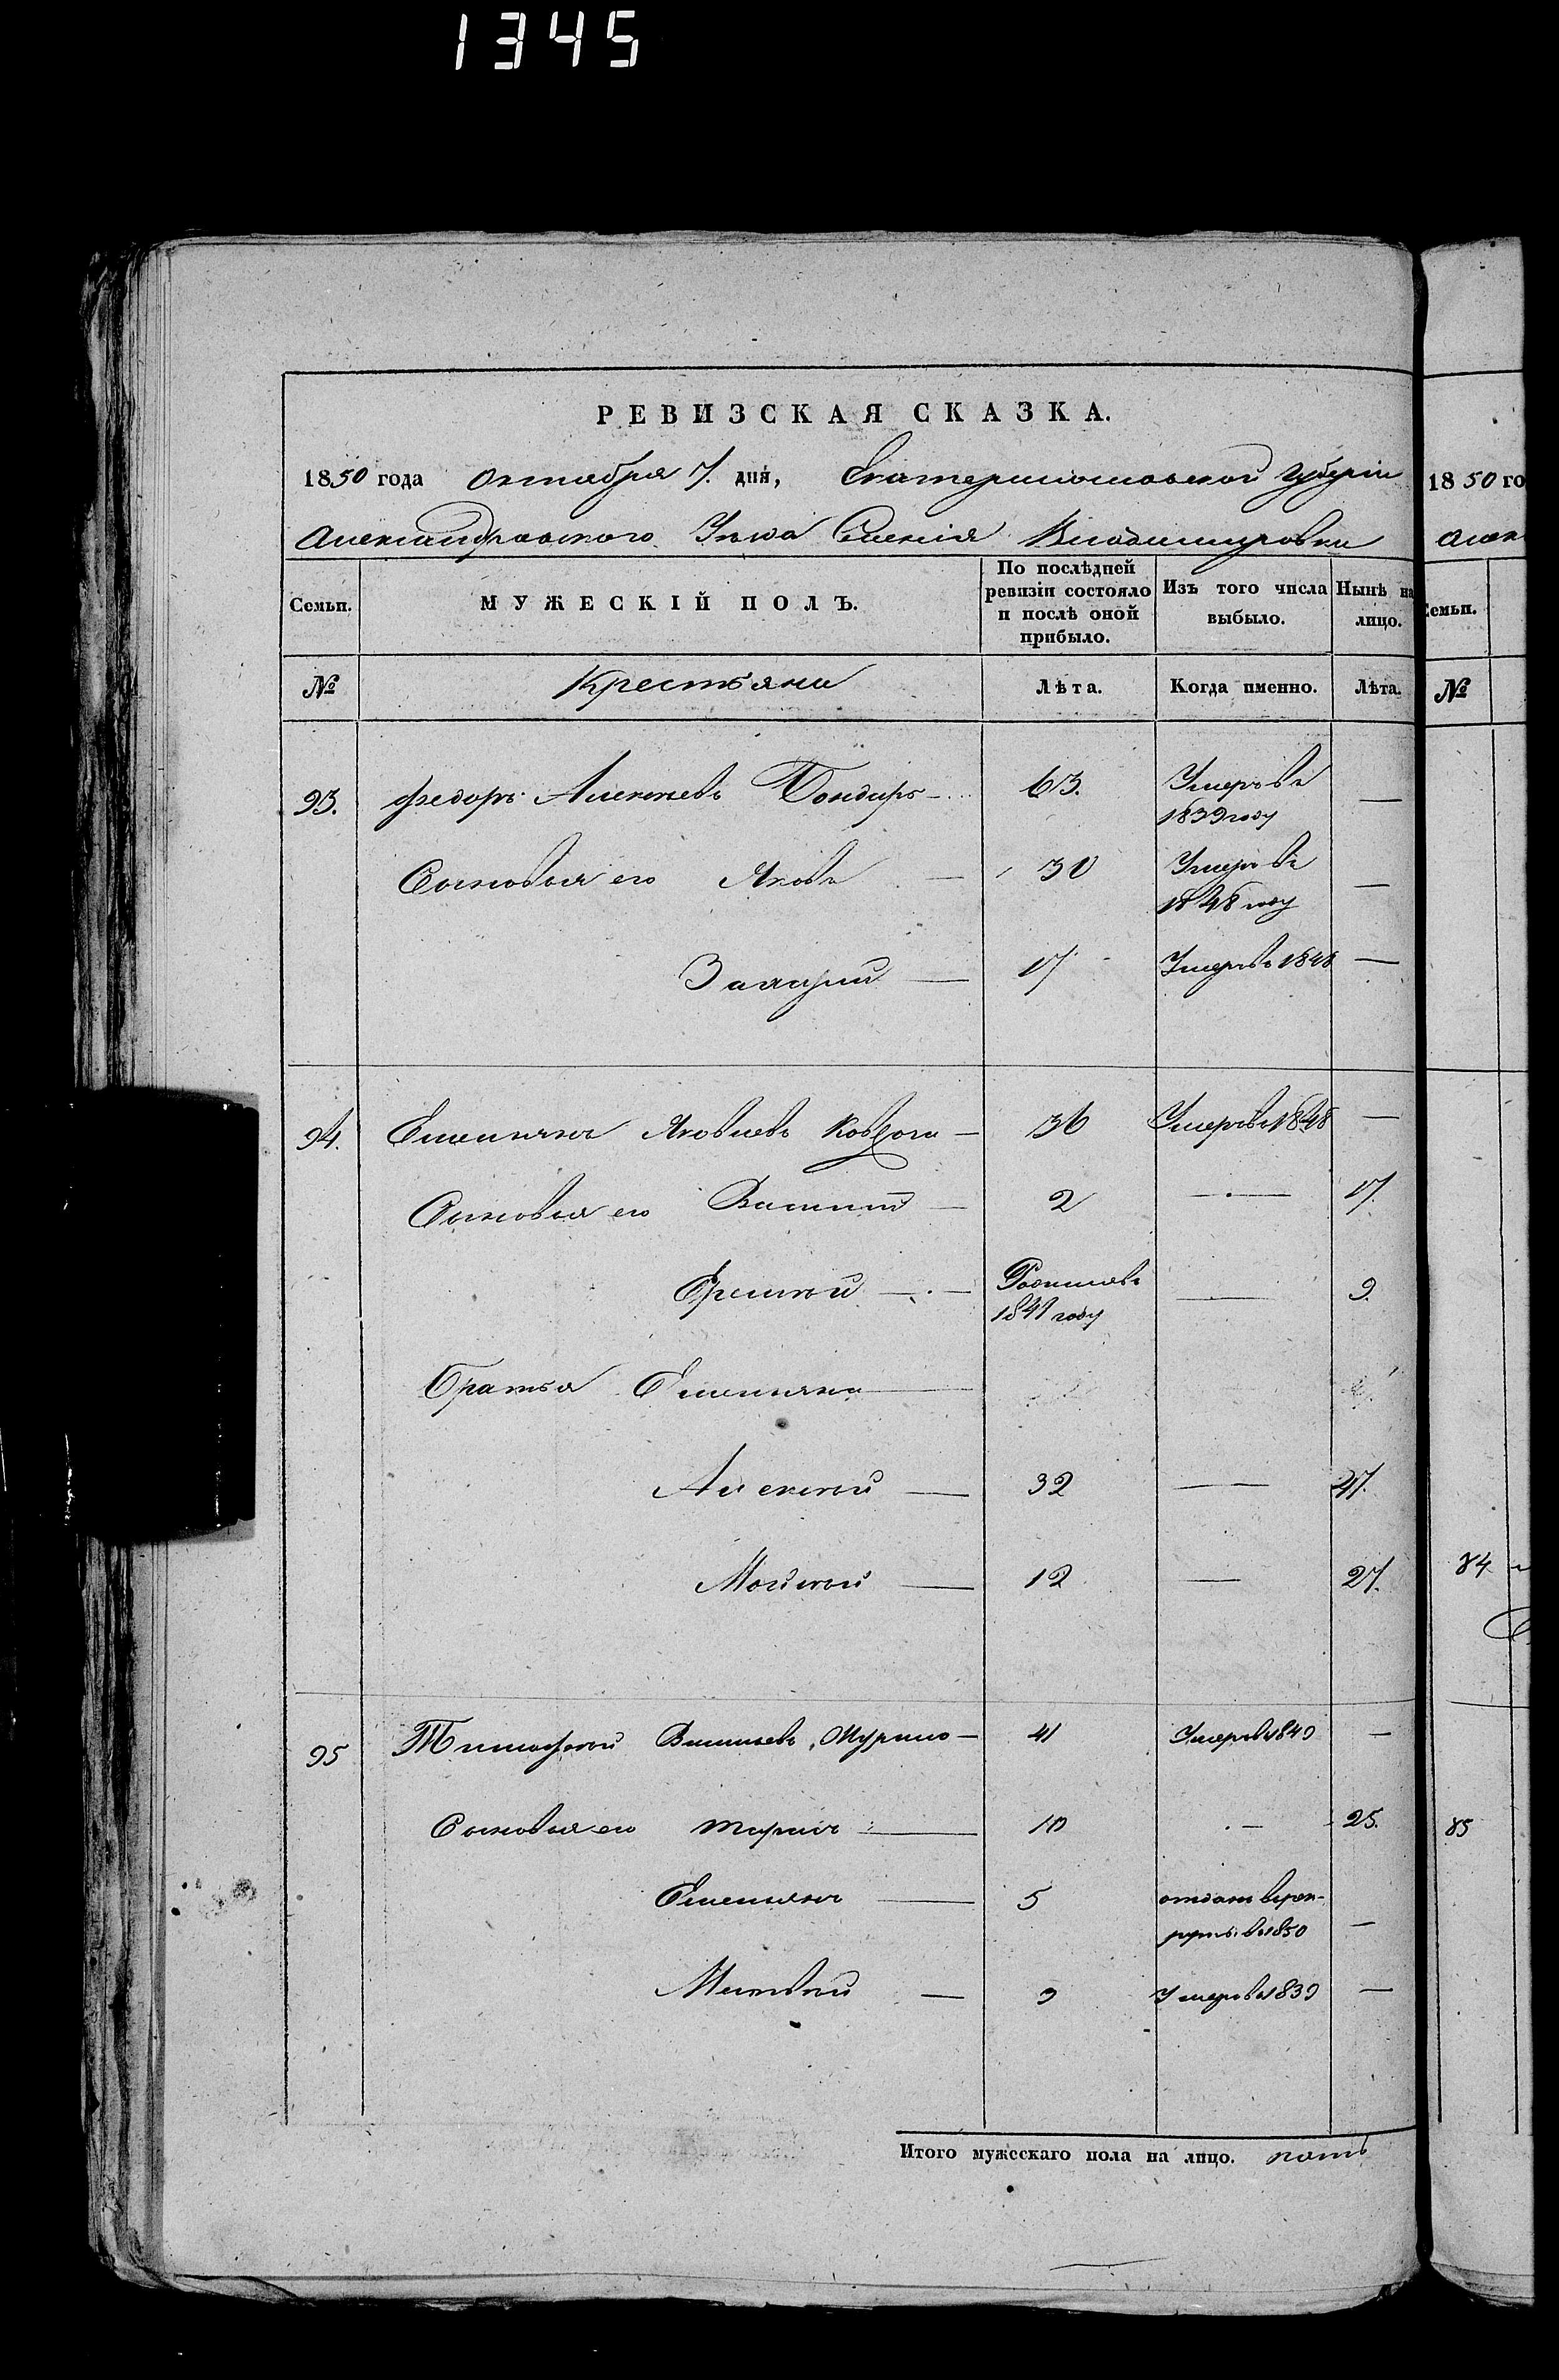 1345
РЕВИЗСКАЯ СКАЗКА.
1850 года Октября 7. дня, Екатеринославской губерніи
Александровского Уѣзда Селенія Владимировки
Семьи. МУЖЕСКІЙ ПОЛЪ. По послѣдней ревизіи состояло и послѣ оной прибыло. Изъ того числа выбыло. Нынѣ на лицо.
№ Крестьяни Лѣта. Когда именно. Лѣта.
93. Федоръ Алексѣевъ Бондарь 63. Умеръ въ 1839 году —
Сыновья его Яковъ — 30 Умеръ въ 1848 году —
Захарій — 17 Умеръ въ 1848 —
94. Емельянъ Яковлевъ — 36 Умеръ въ 1848 —
Сыновья его Василій — 2 — 17.
Еремѣй — Родился въ 1841 году — 9.
Братья Емельяна —
Алексѣй — 32 — 47.
Мойсѣй — 12 — 27.
95 Тимофѣй Васильевъ — 41 Умеръ въ 1849 —
Сыновья его — 10 — 25.
Емельянъ — 5 отданъ въ рек-
руты въ 1850 —
Матвѣй — 9 Умеръ въ 1839 —
Итого мужескаго пола на лицо. пять
1850 го
Алек
Семьи.
№
84
85